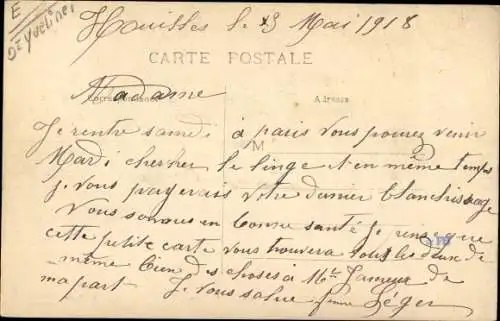 E
Dt Yvelines
Houilles le 23 Mai 1918
CARTE POSTALE
Madame
Correspondance
Adresse
M
Je rentre samedi à paris vous pouvez venir
Mardi chercher le linge et en même temps
je vous payerais votre dernier blanchissage
Vous sommes en bonne santé je pense que
cette petite carte vous trouvera tous les deux de
même bien des choses à Mr Jameux de
ma part Je vous salue femme Léger